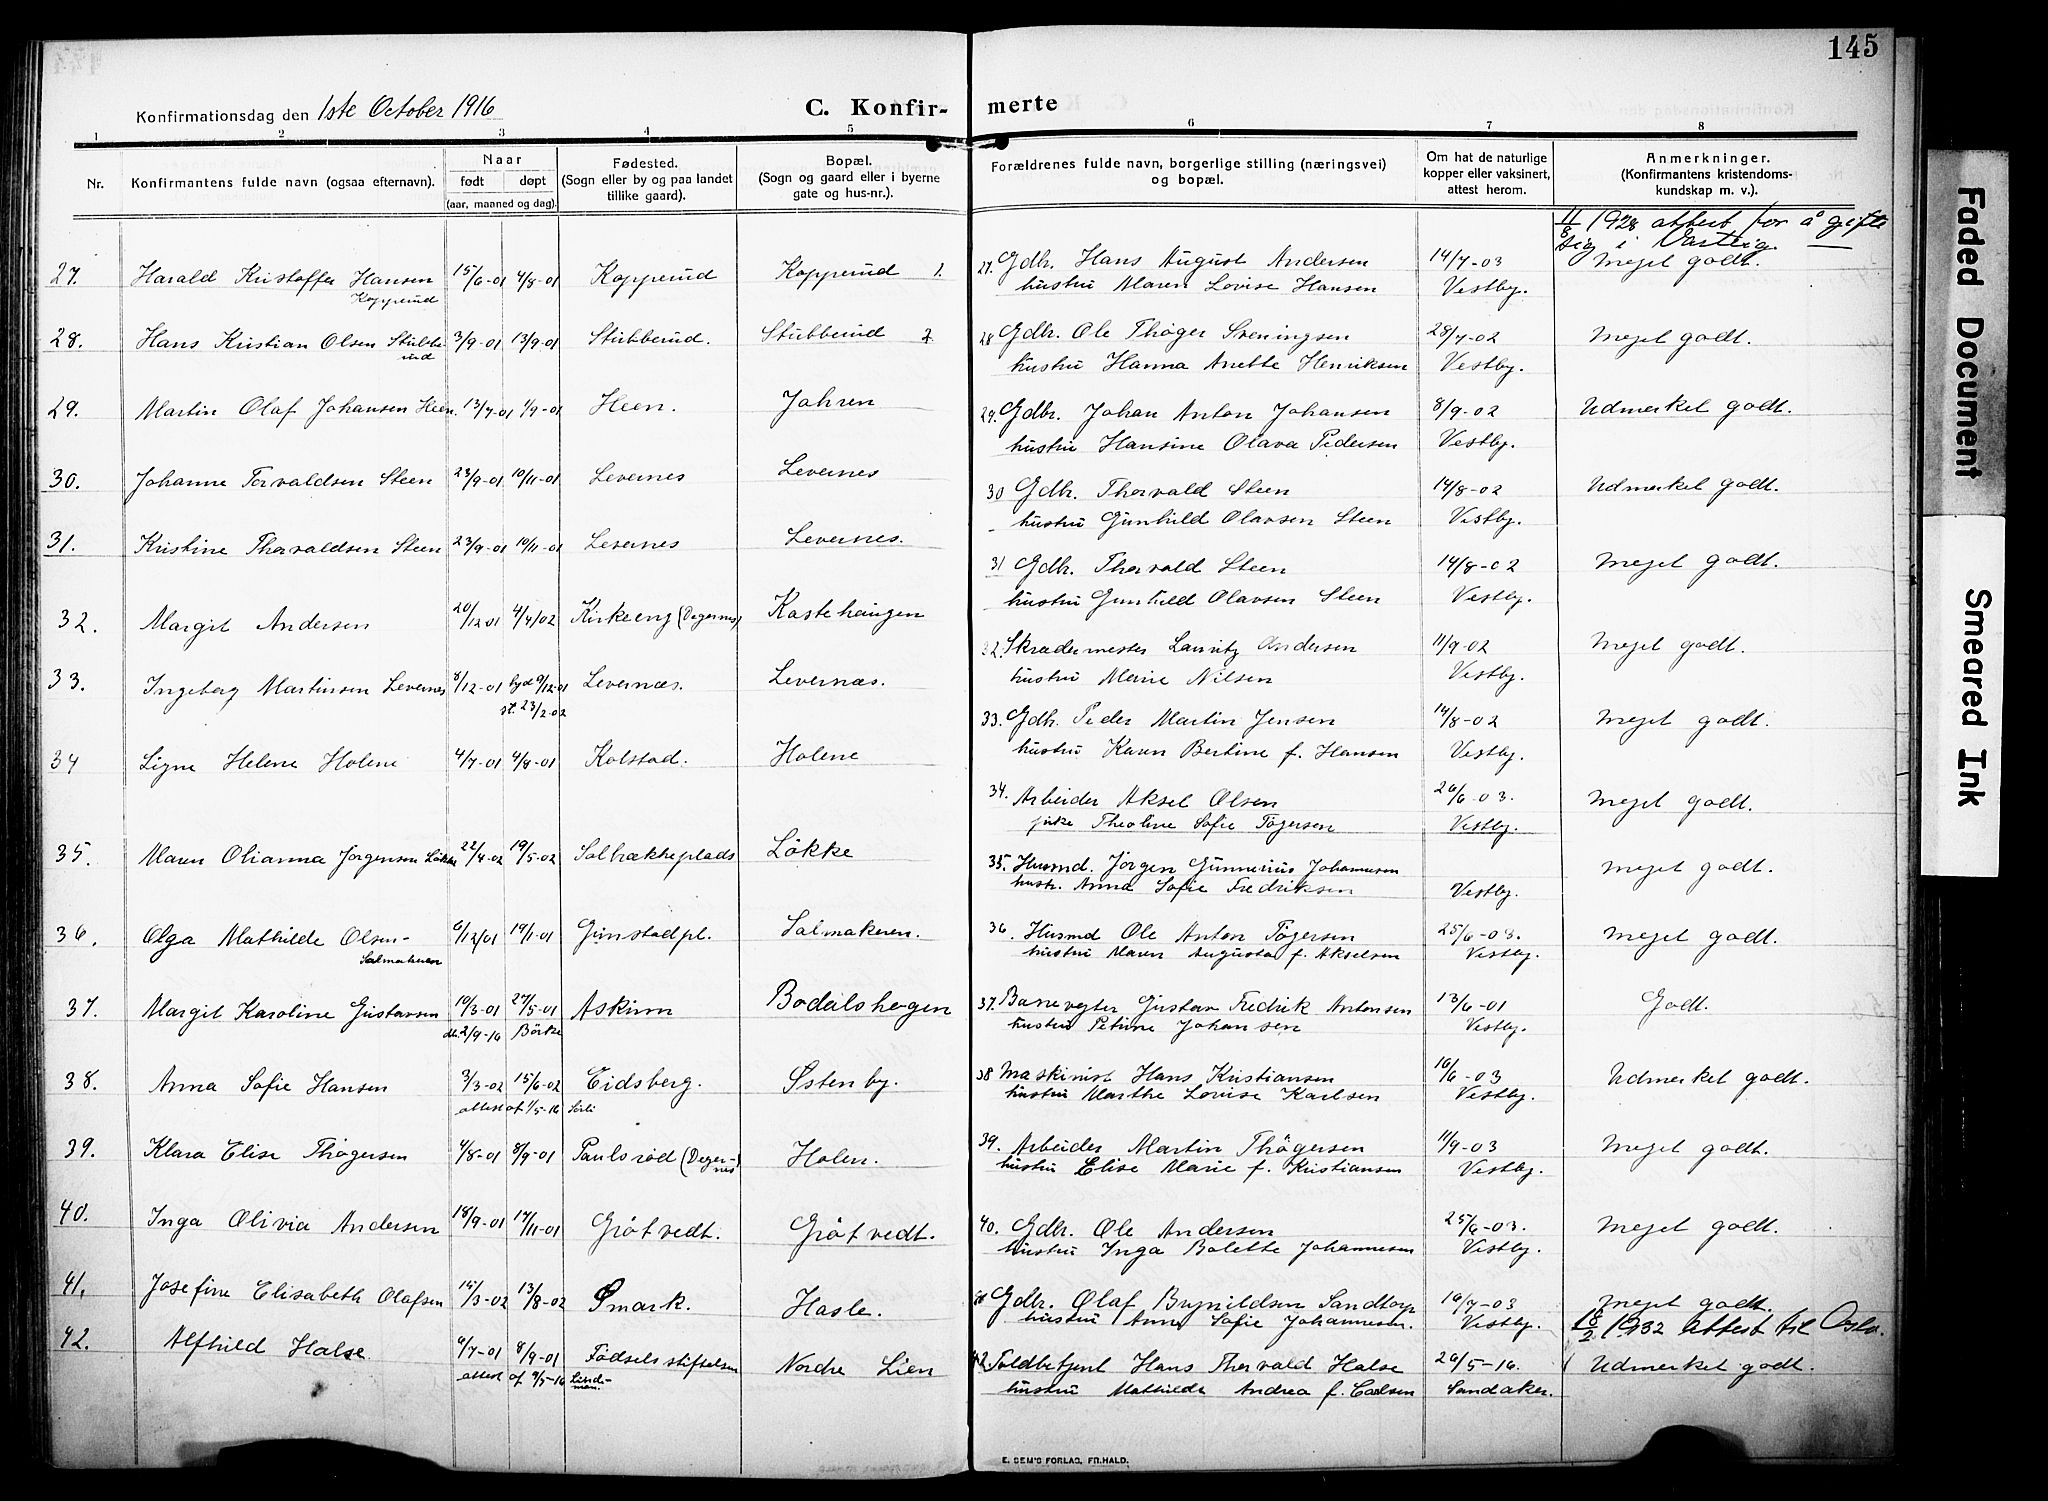 145
Konfirmationsdag den 1ste October 1916
C. Konfir- merte
1 2 3 4 5 6 7 8
Nr.
Konfirmantens fulde navn (ogsaa efternavn).
Naar
født døpt
(aar, maaned og dag).
Fødested.
(Sogn eller by og paa landet
tillike gaard).
Bopæl.
(Sogn og gaard eller i byerne
gate og hus-nr.).
Forældrenes fulde navn, borgerlige stilling (næringsvei)
og bopæl.
Om hat de naturlige
kopper eller vaksinert,
attest herom.
Anmerkninger.
(Konfirmantens kristendoms-
kundskap m. v.).
11/8 1928 attest for å gifte
sig i Varteig.
27. Harald Kristoffer Hansen 15/6-01 4/8-01 Kopperud Kopperud 1.
Kopperud
27. Gdbr. Hans August Andersen 14/7-03 Meget godt.
hustru Maren Lovise Hansen Vestby.
28. Hans Kristian Olsen Stubbe 3/9-01 13/9-01 Stubberud. Stubberud 2.
rud
28 Gdbr. Ole Thøger Sveningsen 28/7-02 Meget godt.
hustru Hanna Anette Henriksen Vestby.
29. Martin Olaf Johansen Heen. 13/7-01 1/9-01 Heen. Jahren
29. Gdbr. Johan Anton Johansen 8/9-02 Udmerket godt.
hustru Hansine Olava Pedersen Vestby.
30. Johanne Torvaldsen Steen 23/9-01 10/11-01 Levernes Levernes
30 Gdbr. Thorvald Steen 14/8-02 Udmerket godt.
hustru Gunhild Olavsen Steen Vestby.
31. Kristine Thorvaldsen Steen 23/9-01 10/11-01 Levernes Levernes.
31 Gdbr. Thorvald Steen 14/8-02 Meget godt.
hustru Gunhild Olavsen Steen Vestby.
32. Margit Andersen 20/12-01 4/4/02 Kirkeeng (Degernes) Kastehaugen
32. Skrædermester Lauritz Andersen 11/9-02 Meget godt.
hustru Marie Nilsen Vestby.
33. Ingeborg Martinsen Levernes 8/12-01 hjd 9/12-01 Levernæs. Levernæs.
st. 23/2-02
33. Gdbr. Peder Martin Jensen 14/8-02 Meget godt.
hustru Karen Bertine f. Hansen Vestby.
34 Signe Helene Holene 4/7-01 4/8-01 Kolstad. Holene
34. Arbeider Aksel Olsen 26/6-03. Meget godt.
pike Theoline Sofie Tøgersen Vestby.
35. Maren Olianna Jørgensen Løkke 22/4-02 19/5-02 Solbrækkeplads Løkke
35. Husmd. Jørgen Gunnerius Johannesen Meget godt.
hustr. Anna Sofie Fredriksen Vestby.
36. Olga Mathilde Olsen- 6/12/01 19/1-01 Grimstadpl. Salmakeren.
Salmakeren
36. Husmd Ole Anton Tøgersen 25/6-03. Meget godt.
hustru Maren Augusta f. Akselsen Vestby.
37. Margit Karoline Gustavsen 10/3-01 27/5-01 Askim Bodalshogen
2/9-16 Børke
37. Banevogter Gustav Fredrik Antonsen 13/6-01 Godt.
hustru Petrine Johansen Vestby.
38. Anna Sofie Hansen 3/3-02 15/6-02 Eidsberg. Østenby.
attest af 1/5-16
38 Maskinist Hans Kristiansen 16/6-03 Udmerket godt.
hustru Marthe Lovise Karlsen Vestby.
39. Klara Elise Thøgersen 4/8-01 8/9-01 Paulsrød (Deger- Holen.
nes)
39. Arbeider Martin Thøgersen 11/9-03 Meget godt.
hustru Elise Marie f. Kristiansen Vestby.
40. Inga Olivia Andersen 18/9-01 17/11-01 Grøtvedt. Grøtvedt.
40. Gdbr. Ole Andersen 25/6-03. Meget godt.
hustru Inga Bolette Johannesen Vestby.
41. Josefine Elisabeth Olafsen 15/3-02 13/8-02 Ømark. Hasle.
Gdbr. Olaf Brynildsen Sandtorp 16/7-03 Meget godt.
hustru Anna Sofie Johannesen. Vestby. 18/2 1932 Attest til Oslo.
42. Alfhild Halse 6/7-01 8/9-01 Fødselsstiftelsen Nordre Lien
attest af 9/5-16
42 Toldbetjent Hans Thorvald Halse 26/5-16. Udmerket godt.
hustru Mathilde Andrea f. Carlsen Sandaker.
E. SEM'S FORLAG, FR.HALD.
Faded Document
Smeared Ink